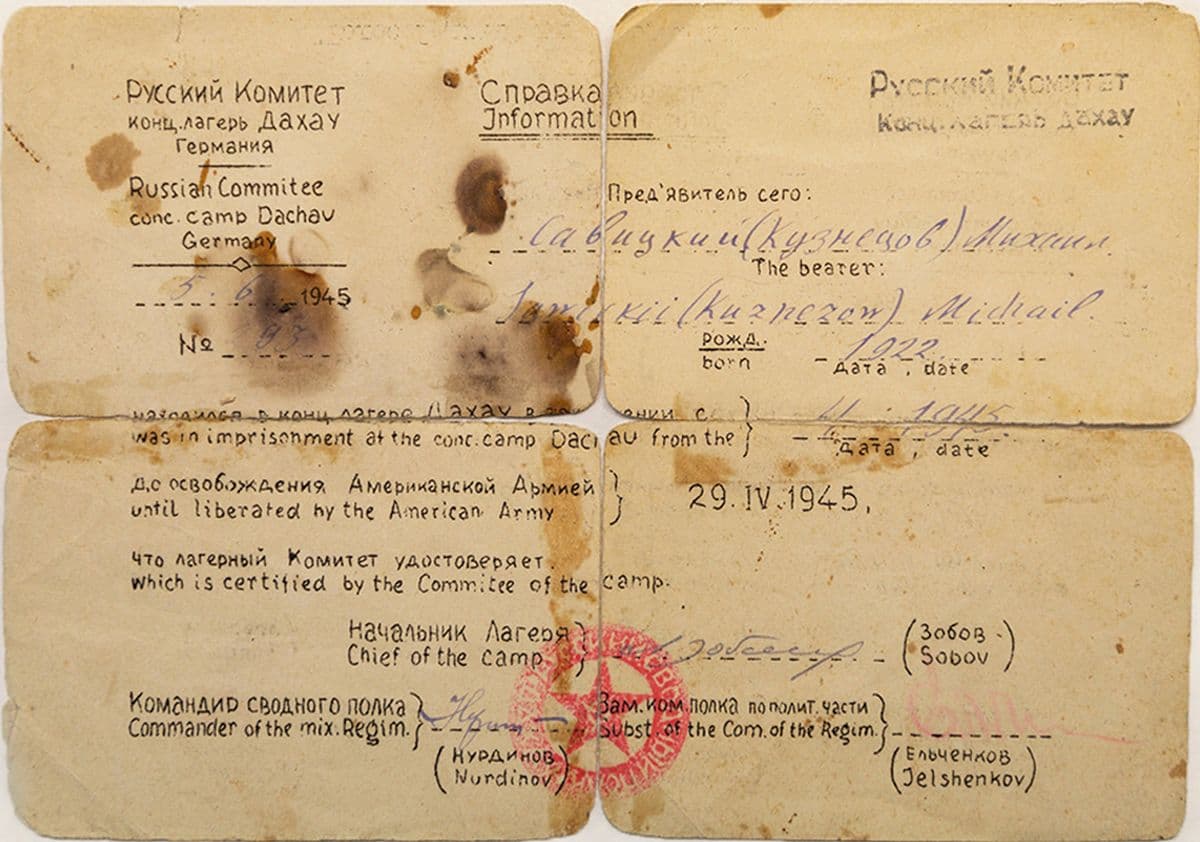 Русский Комитет
конц.лагерь Дахау
Германия
Russian Commitee
conc. camp Dachau
Germany
5. 6. 1945
№ 93
Справка
Information
Русский Комитет
конц.лагерь Дахау
Пред'явитель сего:
Савицкий (Кузнецов) Михаил.
The bearer:
(Kuznezow) Michail.
рожд. 1922
born дата, date
находился в конц лагере Дахау в с
was in imprisonment at the conc.camp Dachau from the } 1945
дата, date
до освобождения Американской Армией
until liberated by the American Army } 29.IV.1945,
что лагерный Комитет удостоверяет.
which is certified by the Commitee of the camp.
Начальник Лагеря
Chief of the camp } (Зобов
Sobov)
Командир сводного полка
Commander of the mix. Regim. }
(Нурдинов
Nurdinov)
Зам.ком полка по полит. части
Subst. of the Com. of the Regim. }
(Ельченков
Jelshenkov)